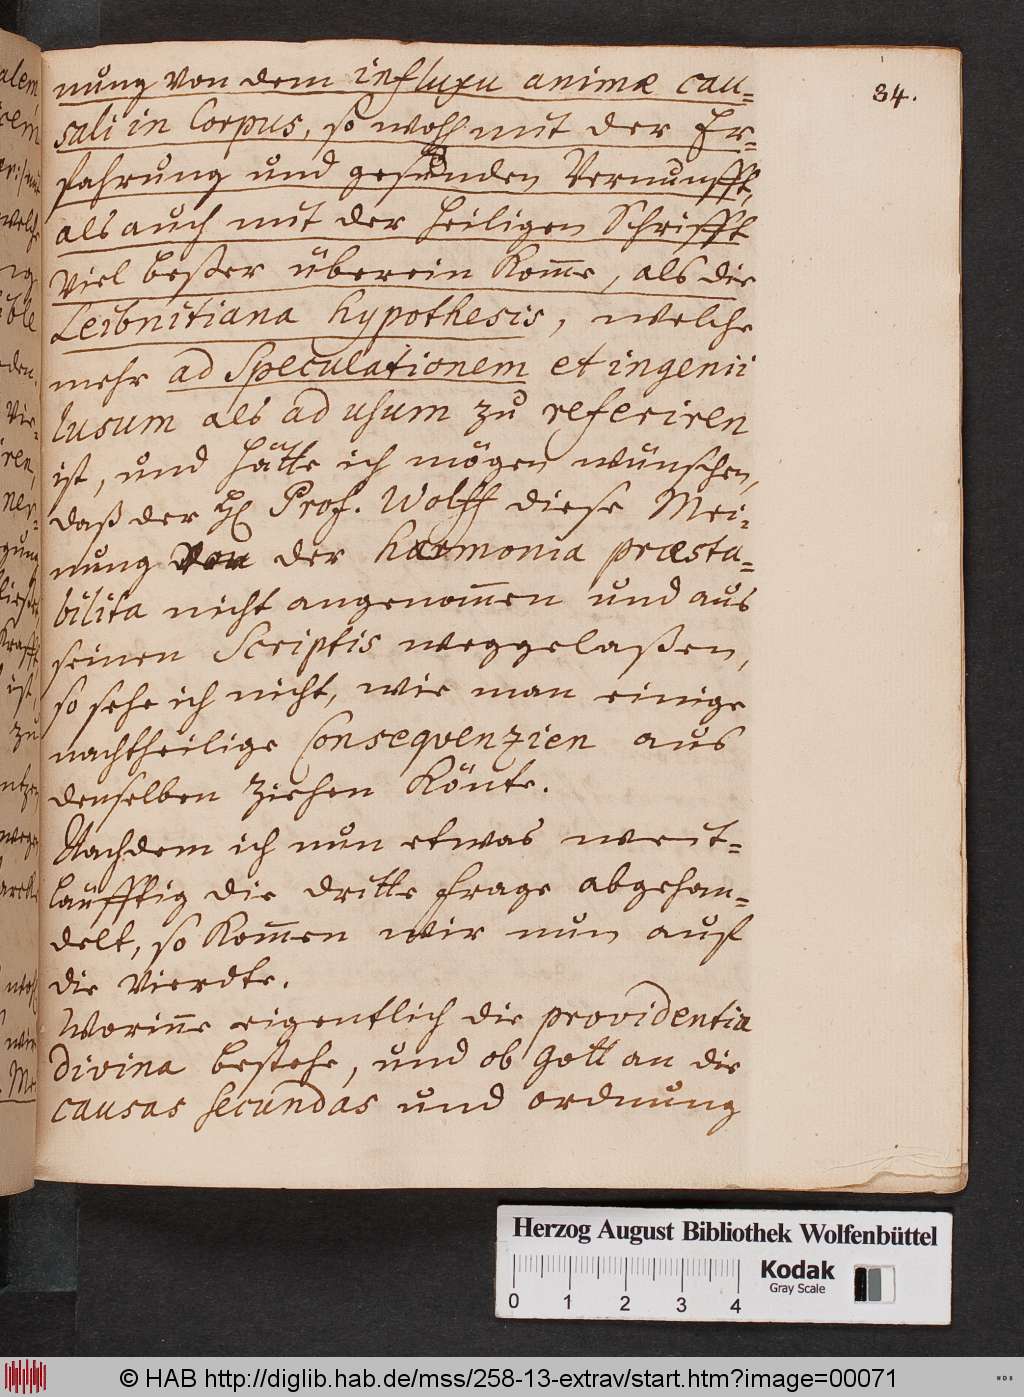 34.
nung von dem influxu animæ cau-
sali in Corpus, so wohl mit der Er-
fahrung und gesunden Vernunfft,
als auch mit der heiligen Schrifft
viel beßer überein kom̅e, als die
Leibnitiana hypothesis, welche
mehr ad Speculationem et ingenii
lusum als ad usum zu referiren
ist, und hätte ich mögen wünschen,
daß der H. Prof. Wolff diese Mei-
nung von der harmonia præsta-
bilita nicht angenom̅en und aus
seinen Scriptis weggelaßen,
so sehe ich nicht, wie man einige
nachtheilige Conseqvenzien aus
denselben ziehen könte.
Nachdem ich nun etwas weit-
läufftig die dritte Frage abgehan-
delt, so kom̅en wir nun auf
die Vierdte.
Worin̅e eigentlich die providentia
divina bestehe, und ob Gott an die
causas secundas und ordnung
Herzog August Bibliothek Wolfenbüttel
Kodak
Gray Scale
0 1 2 3 4
© HAB http://diglib.hab.de/mss/258-13-extrav/start.htm?image=00071